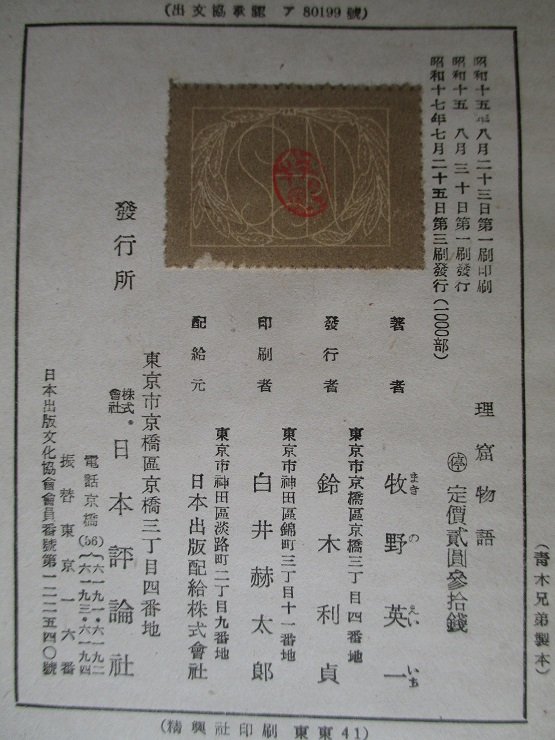 (出文協承認 ア 80199號)
昭和十五年八月二十三日第一刷印刷
昭和十五　八月三十日第一刷發行
昭和十七年七月二十五日第三刷發行(1000部)
理窟物語
停 定價貳圓參拾錢
著者 牧野英一
まき の えい いち
東京市京橋區京橋三丁目四番地
發行者 鈴木利貞
東京市神田區錦町三丁目十一番地
印刷者 白井赫太郎
東京市神田區淡路町二丁目九番地
配給元 日本出版配給株式會社
發行所
東京市京橋區京橋三丁目四番地
株式會社 日本評論社
電話京橋(56)(六一九一・六一九二 六一九三・六一九四
振替東京一六番
日本出版文化協會會員番號第一二二五四〇號
(青木兄弟製本)
(精興社印刷 東東41)